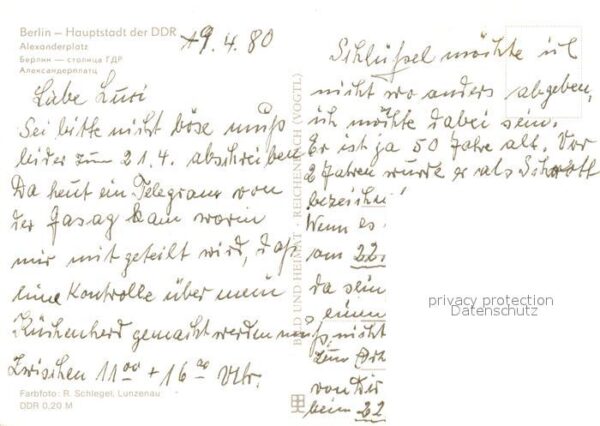 Berlin – Hauptstadt der DDR
Alexanderplatz
Берлин — столица ГДР
Александерплатц
19.4.80
Liebe Luci
Sei bitte nicht böse muß
leider zum 21.4. abschreiben
Da heut ein Telegram von
der Gasag kam worin
mir mit geteilt wird, daß
eine Kontrolle über mein
Küchenherd gemacht werden muß,
Zwischen 11 00 + 16 00 Uhr.
Farbfoto: R. Schlegel, Lunzenau
DDR 0,20 M
BILD UND HEIMAT · REICHENBACH (VOGTL)
Schlüßel möchte ich
nicht wo anders abgeben,
ich möchte dabei sein.
Er ist ja 50 Jahre alt. Vor
2 Jahren wurde er als Schrott
bezeichn
Wenn es
am 22.
da sein
einen
nicht
zum
von Dir
beim 22
privacy protection
Datenschutz